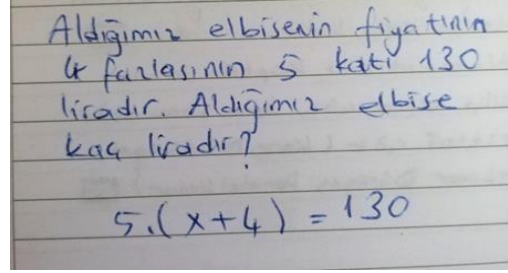 Aldığımız elbisenin fiyatının
4 fazlasının 5 katı 130
liradır. Aldığımız elbise
kaç liradır?
5.(x+4) = 130